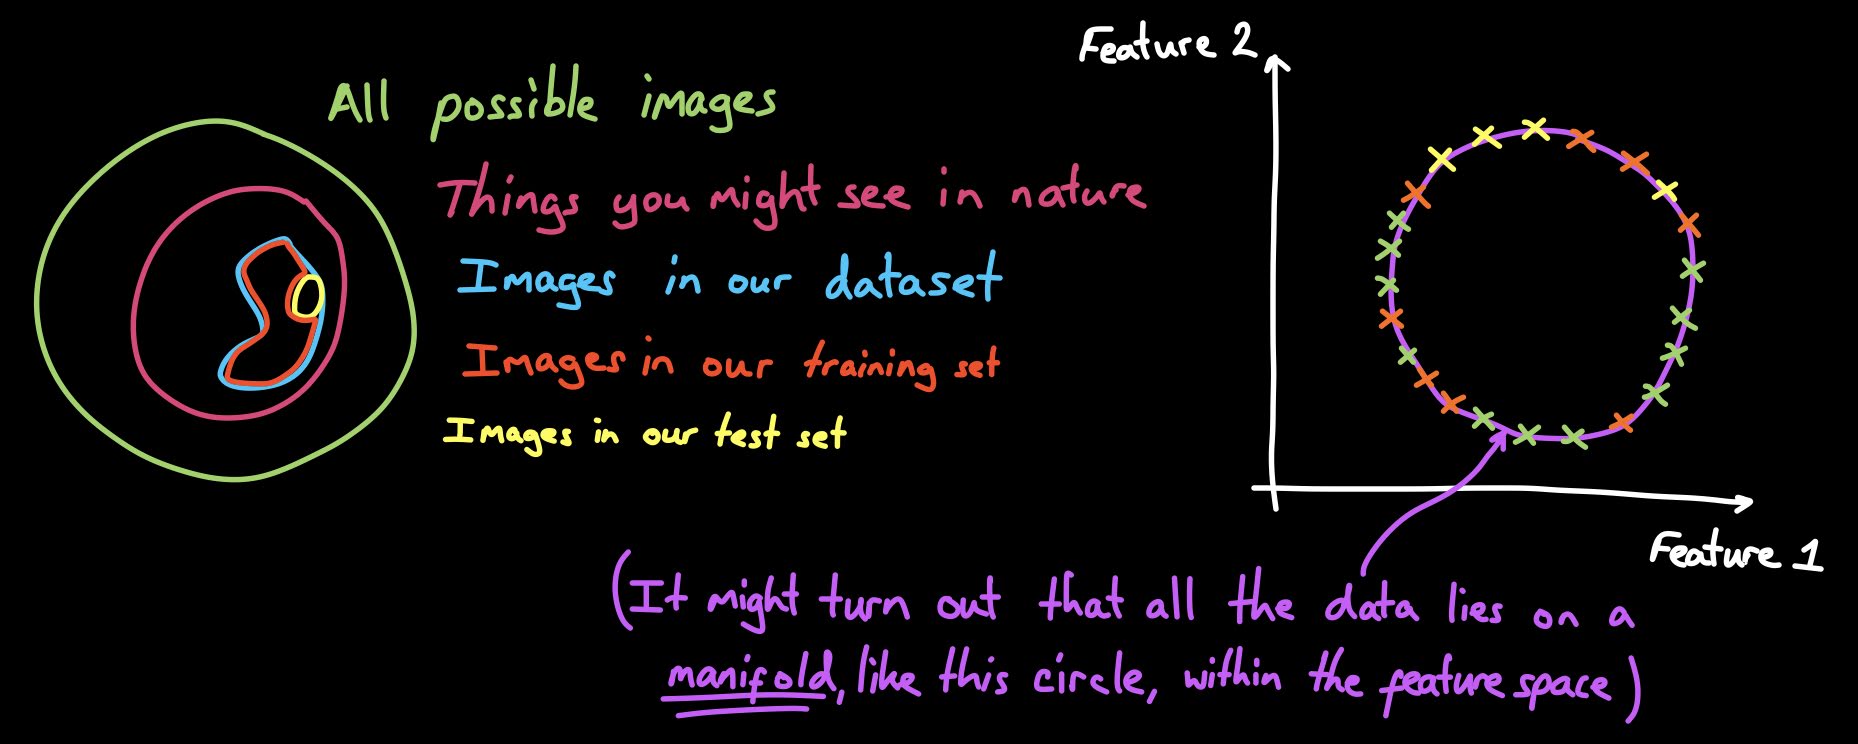 All possible images
Things you might see in nature
Images in our dataset
Images in our training set
Images in our test set
Feature 2
Feature 1
(It might turn out that all the data lies on a
manifold, like this circle, within the feature space)